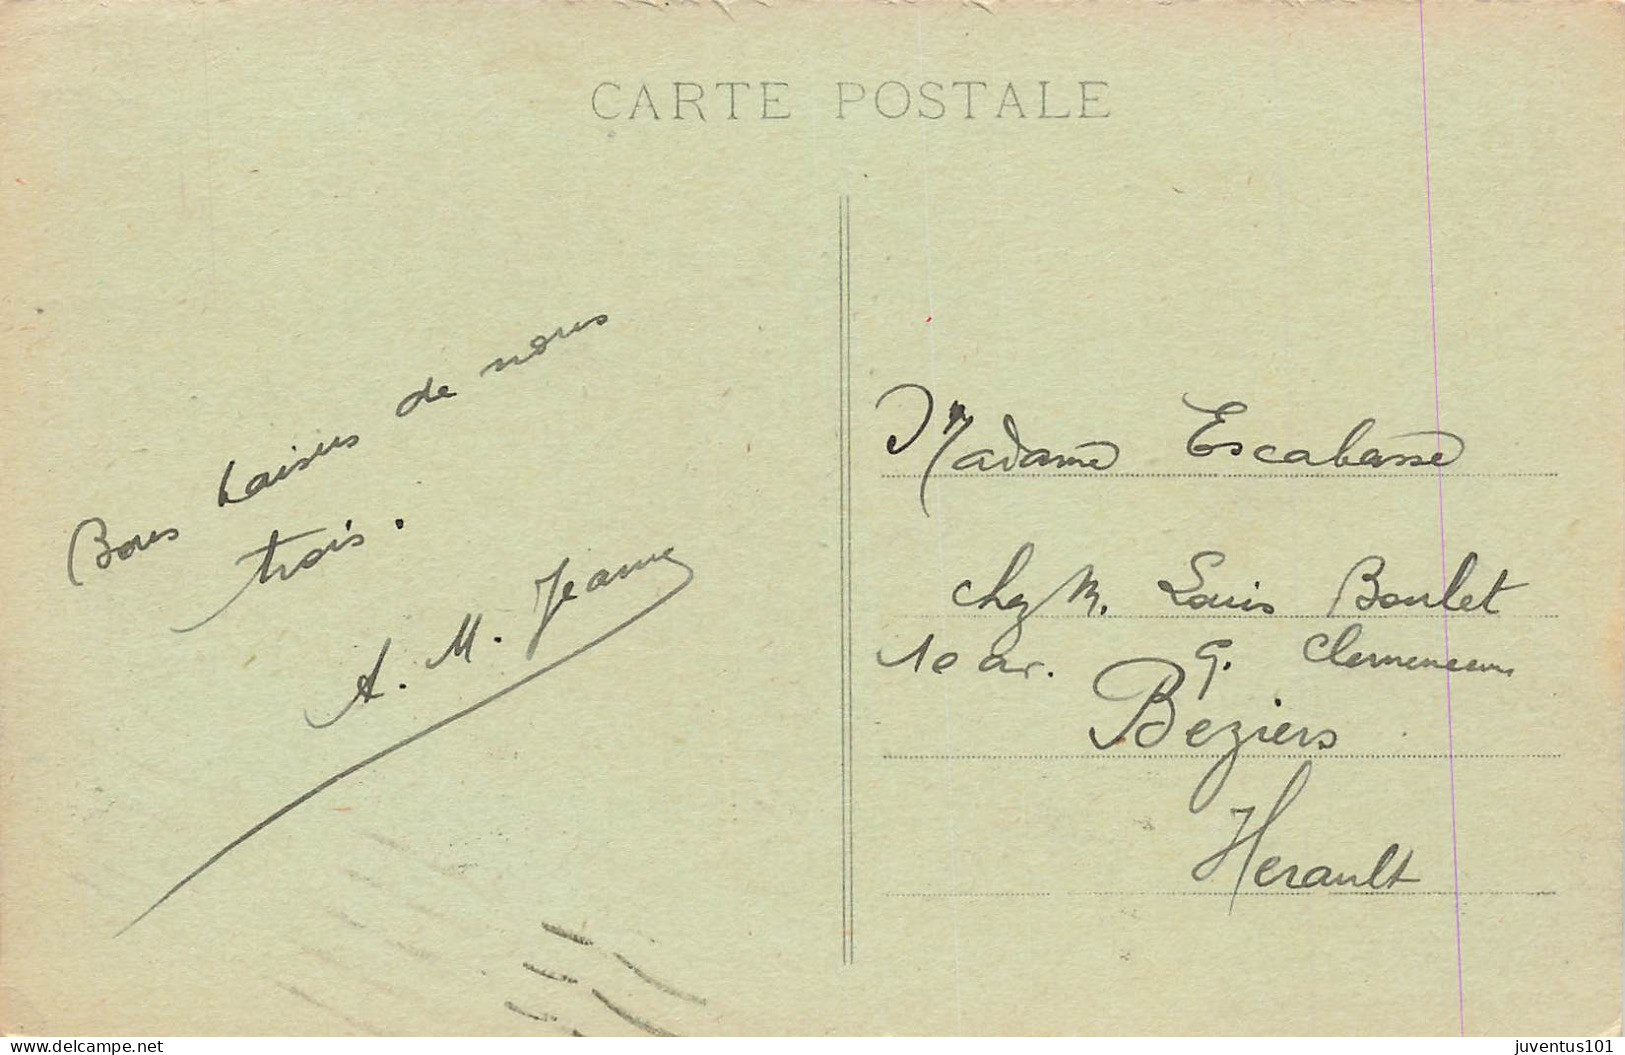 CARTE POSTALE
Bons baisers de nous
trois.
A. M. Jeanne
Madame Escabasse
chez M. Louis Boulet
10 av. G. Clemenceau
Beziers
Herault
delcampe.net
juventus101